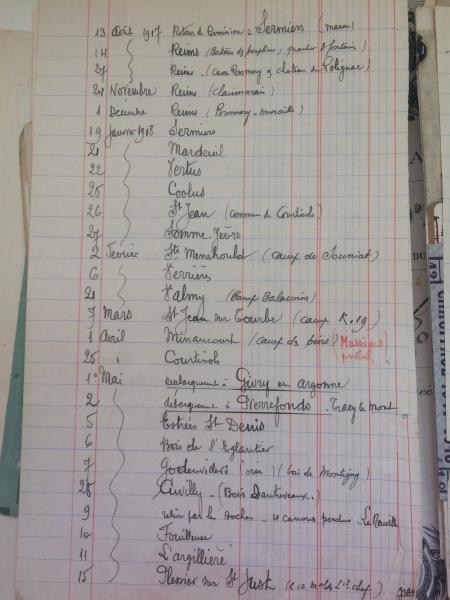 13 Août 1917 Retour de Permission à Sermiers (marne)
14 Reims (Batterie des peupliers, quartier St
27 Reims (Cave Pommery & chateau de Polignac)
24 Novembre Reims (Clairmarais)
1 Decembre Reims (Pommery - muraille)
19 janvier 1918 Sermiers
21 Mardeuil
22 Vertus
25 Coolus
26 St Jean (commune de Courtisols)
27 Somme Yèvre
2 Fevrier Ste Menehould (camp de
6 Verrières
21 Valmy
7 Mars St Jean sur Tourbe (camp K.19)
1 Avril Minaucourt (camp des (Massiges
25 " Courtisols
1° Mai embarquement à Givry en argonne
2 débarquement à Pierrefonds. Tracy le Mont
5 Estrées St Denis
6 Bois de l'Eglantier
7 Godenvillers (bois de Montigny)
28 Cuvilly - (Bois
9 par les Boches - 4 canons perdus - La Neuville
10 Fouilleuse
11 L'argillière
15 Plessier sur St Just